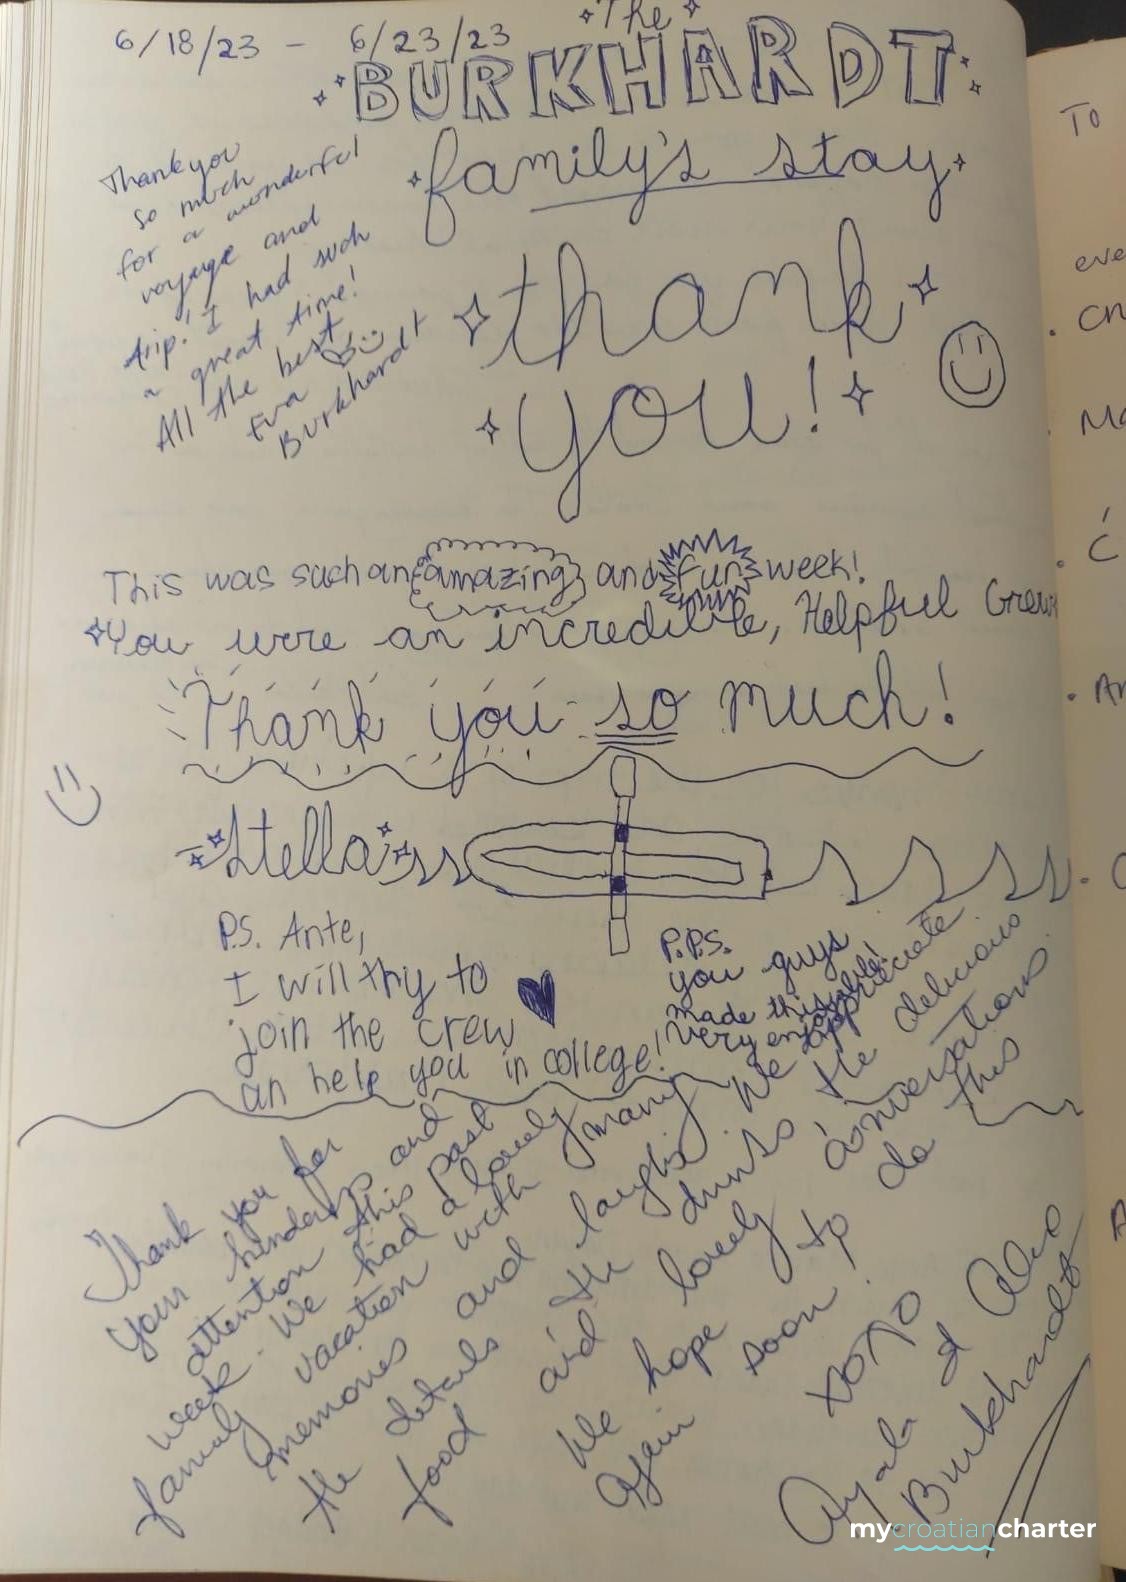 6/18/23 - 6/23/23
The
BURKHARDT
family's stay
thank
you!
Thank you
so much
for a wonderful
voyage and
trip! I had such
a great time!
All the best,
Eva
Burkhardt
This was such an amazing and fun week!
You were an incredible, Helpful Crew
Thank you so much!
Stella
P.S. Ante,
I will try to
join the crew
an help you in college!
P.P.S.
you guys
made this
very enjoyable!
Thank you for
your kindness and
attention this past
week. We had a lovely
family vacation with many
memories and laughs. We appreciate
the details the drinks the delicious
food and lovely conversations
We hope to do this
again soon!
xoxo
Ayala &
Burkhardt
To
mycroatiancharter